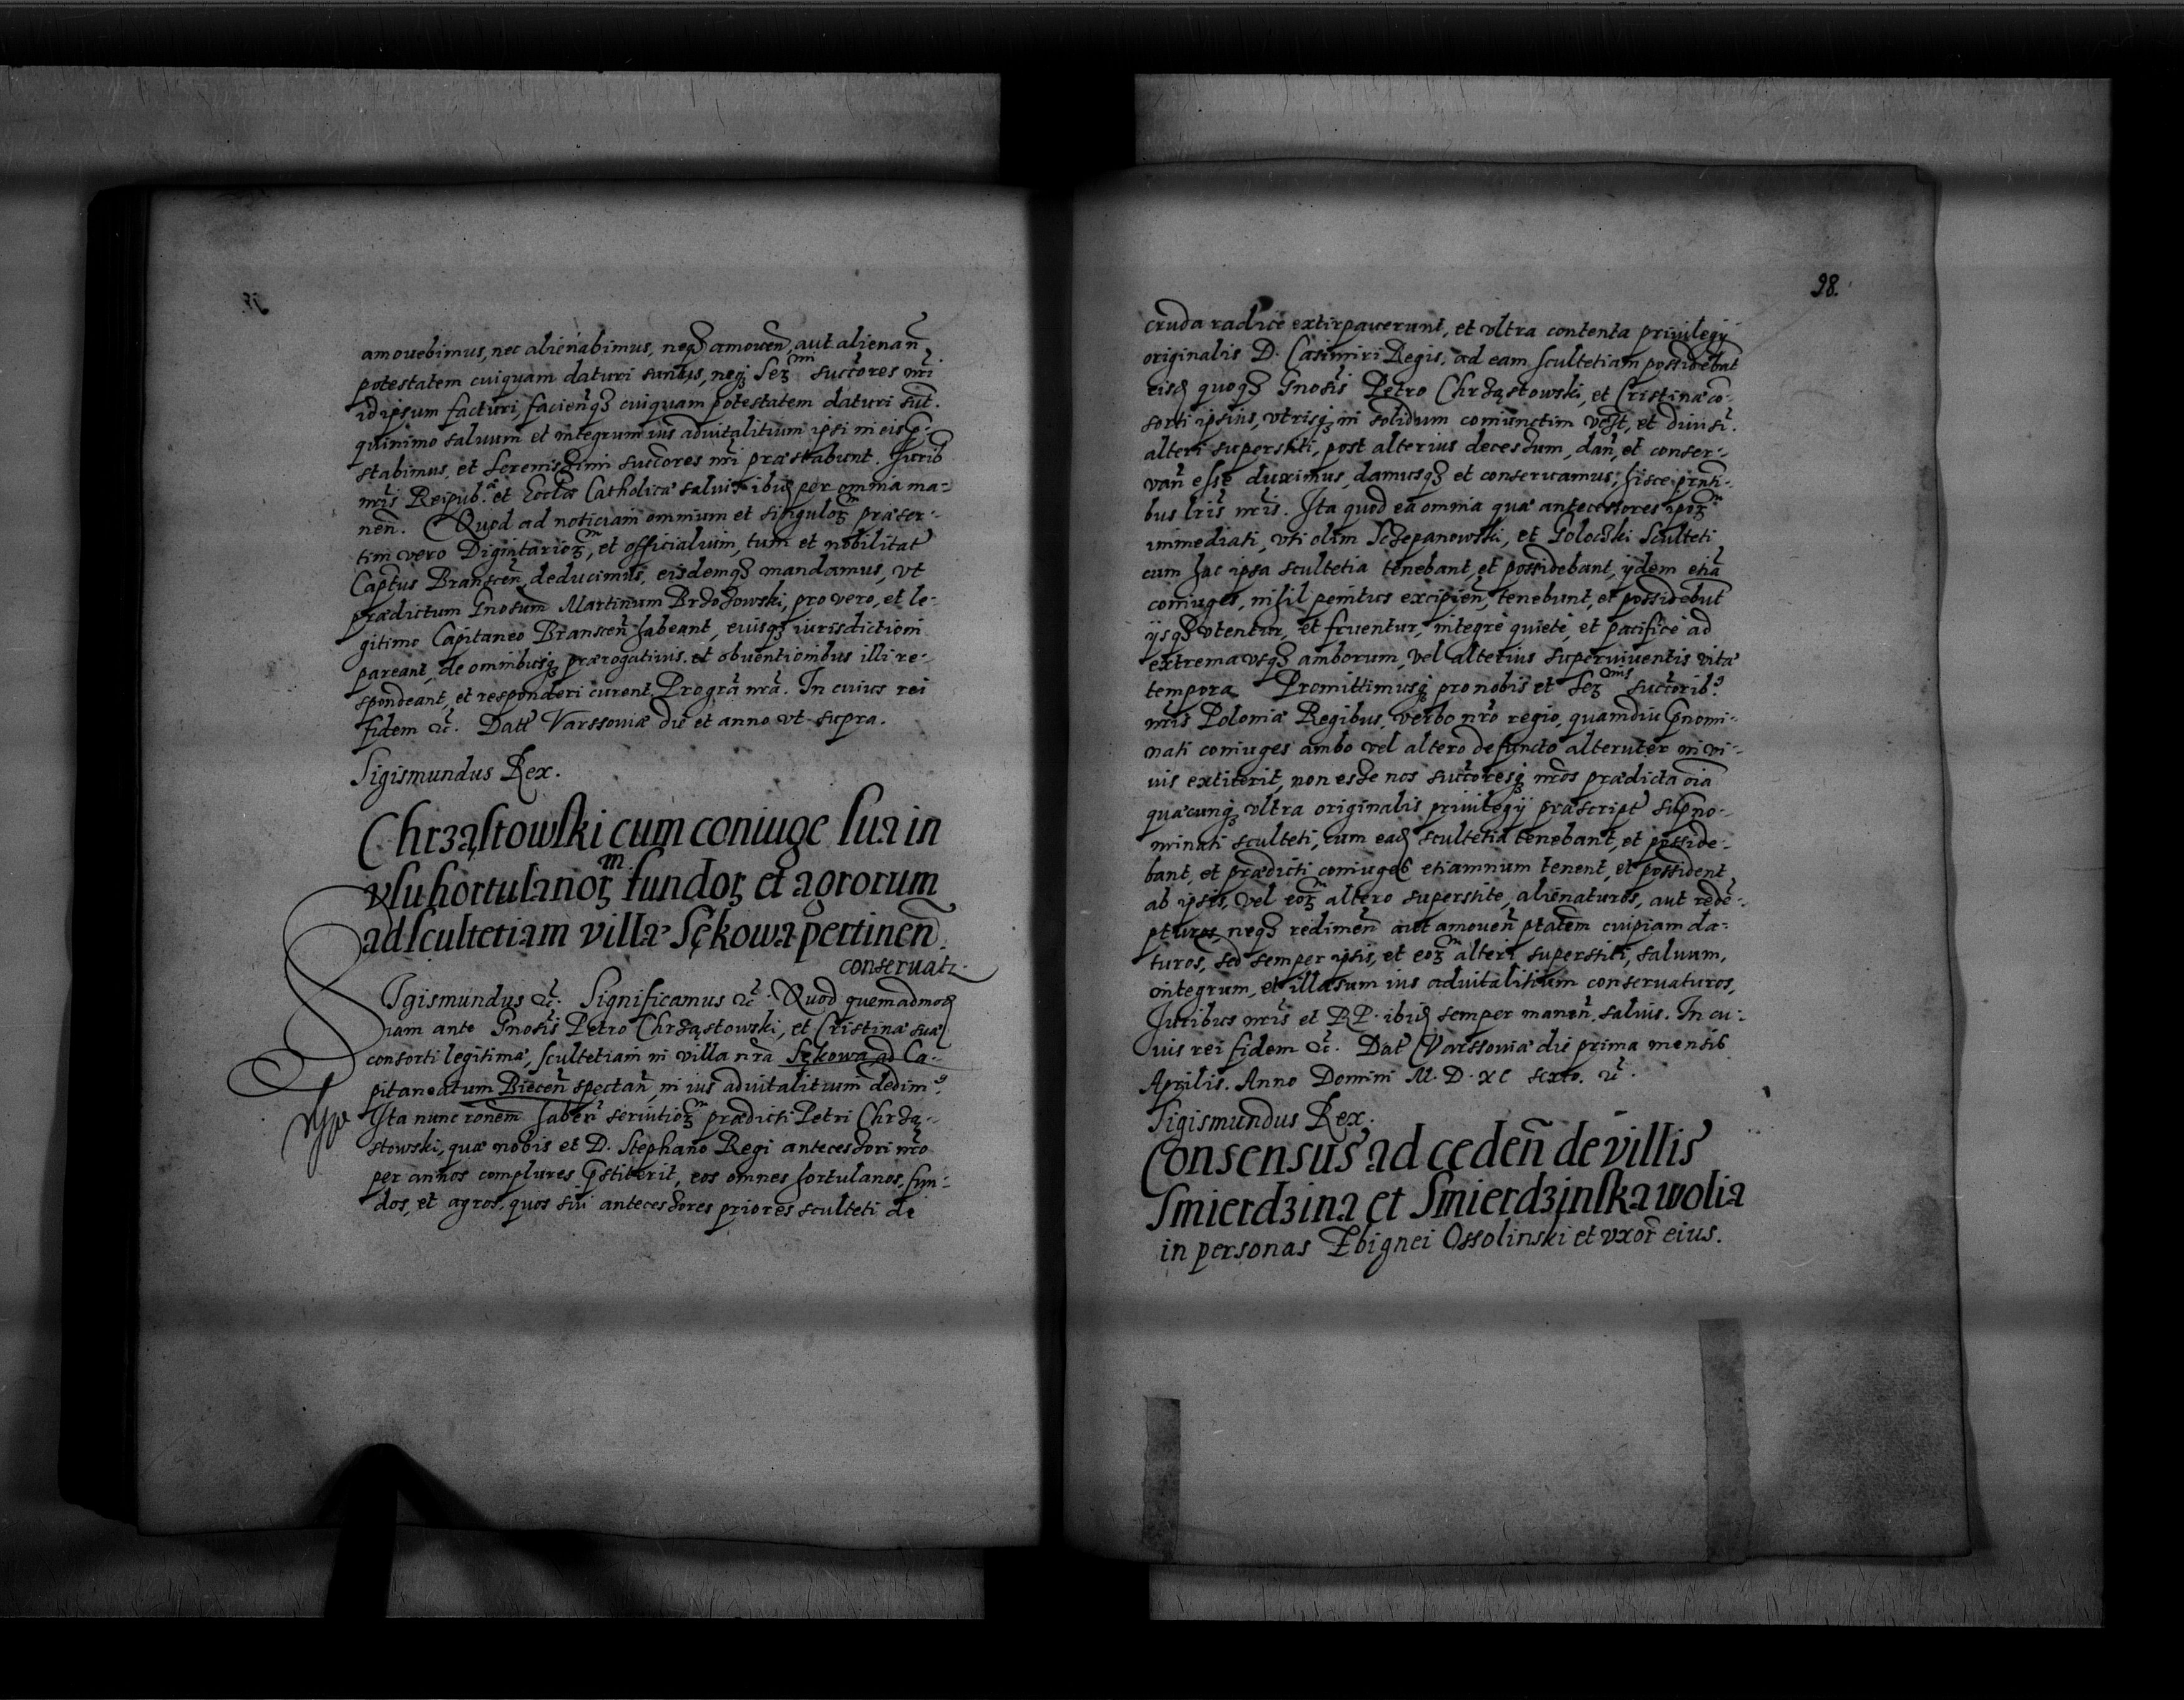 amouebimus, nec alienabimus, neqꝫ amouen̄, aut alienan̄
potestatem cuiquam daturi sumus, neqꝫ Serᵐⁱ succ̄ores nr̄i
id ipsum facturi, facien̄qꝫ cuiquam potestatem daturi sūt.
quinimo saluum et integrum ius aduitalitium ipsi in eis p̄-
stabimus, et Serenissimi succ̄ores nr̄i præstabunt. Jurib
nr̄is Reipub. et Eccl̄æ Catholicæ saluis ibid per omnia ma-
nen̄. Quod ad noticiam omnium et singuloꝝ præser-
tim vero Dignitarioꝝ, et officialium, tum et nobilitat
Capt̄us Branscen̄ deducimus, eisdemqꝫ mandamus, vt
prædictum Gnosum Martinum Brzozowski, pro vero, et le-
gitimo Capitaneo Branscen̄ habeant, euisqꝫ iurisdictioni
pareant, de omnibusqꝫ prærogatiuis et obuentionibus illi re-
spondeant, et responderi curent, Pro gr̄a nr̄a. In cuius rei
fidem ꝛc̄. Datt Varssouiæ die et anno vt supra.
Sigismundus Rex.
Chrząstowski cum coniuge sua in
vsu hortulanoꝝᵐ fundoꝝ et agrorum
ad scultetiam villæ Sękowa pertinen̄.
conseruatr.
Sigismundus ꝛc̄. Significamus ꝛc̄. Quod quemadmod
iam ante Gnosis Petro Chrząstowski, et Cristinæ suæ
consorti legitimæ, scultetiam in villa nr̄a Sękowa ad Ca-
pitaneatum Biecen̄ spectan̄, in ius aduitalitium dedim⁹
Ita nunc ron̄em haben̄ seruitioꝝᵐ prædicti Petri Chrzą-
stowski, quæ nobis et D. Stephano Regi antecessori nr̄o
per annos complures p̄stiterit, eos omnes hortulanos, fun-
dos, et agros, quos sui antecessores priores sculteti de
98.
cruda radice extirpauerunt, et vltra contenta priuilegy
originalis D. Casimiri Regis, ad eam scultetiam possidebāt
eisd quoqꝫ Gnosis Petro Chrząstowski, et Cristinæ cō-
sorti ipsius, vtrisqꝫ in solidum coniunctim vest, et diuisī.
alteri superstiti, post alterius decessum, dan̄, et conser-
uan̄ esse duximus, damusqꝫ et conseruamus, hisce prn̄ti-
bus lr̄is nr̄is. Ita quod ea omnia quæ antecessores ipoꝝᵐ
immediati, vti olim Sczepanowski, et Golocki Sculteti
cum hac ipsa scultetia tenebant, et possidebant, ydem etiā
coniuges, nihil penitus excipien̄, tenebunt, et possidebūt
ysqꝫ vtentur, et fruentur, integre quiete, et pacifice ad
extrema vsqꝫ amborum, vel alterius superuiuentis vitæ
tempora. Promittimusqꝫ pro nobis et Serᵐⁱˢ succ̄orib⁹
nr̄is Poloniæ Regibus, verbo nr̄o regio, quamdiu p̄nomi-
nati coniuges ambo vel altero defuncto alteruter in vi-
uis extiterit, non esse nos succ̄oresqꝫ nr̄os prædicta oīa
quæcunqꝫ vltra originalis priuilegij præscript sup̄no-
minati sculteti, cum ead scultetia tenebant, et posside-
bant, et prædicti coniuges etiamnum tenent, et possident
ab ipsis, vel eoꝝᵐ altero superstite, alienaturos, aut redē-
pturos, neqꝫ redimen̄ aut amouen̄ ptātem cuipiam da-
turos, sed semper ipsis, et eoꝝᵐ alteri superstiti, saluum,
integrum, et illæsum ius aduitalitium conseruaturos,
Juribus nr̄is et RP. ibid semper manen̄. saluis. In cu-
ius rei fidem ꝛc̄. Dat Varssouiæ die prima mensis
Aprilis. Anno Domini M. D. XC sexto. ꝛc̄.
Sigismundus Rex.
Consensus ad ceden̄ de villis
Smierdzina et Smierdzinska wolia
in personas Zbignei Ossolinski et vxor̄ eius.